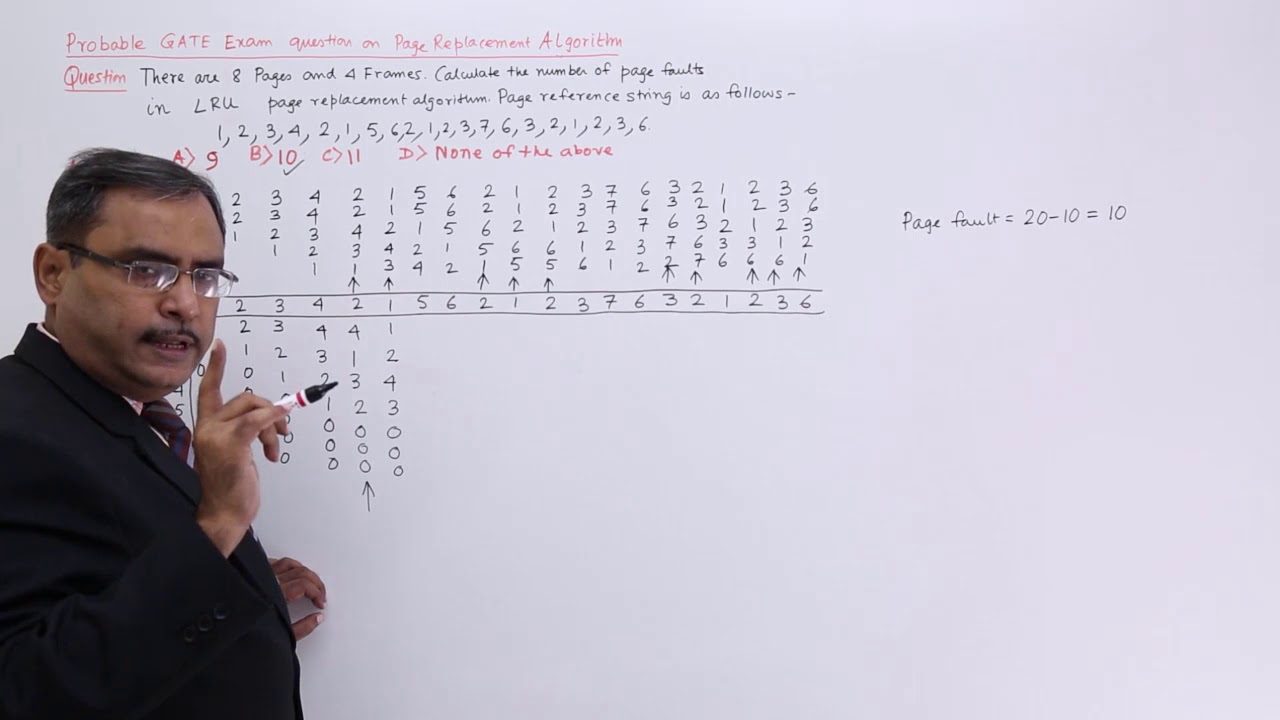 Probable GATE Exam question on Page Replacement Algorithm
Question There are 8 Pages and 4 Frames. Calculate the number of page faults
in LRU page replacement algorithm. Page reference string is as follows-
1, 2, 3, 4, 2, 1, 5, 6, 2, 1, 2, 3, 7, 6, 3, 2, 1, 2, 3, 6.
A> 9 B> 10 ✓ C> 11 D> None of the above
2 3 4 2 1 5 6 2 1 2 3 7 6 3 2 1 2 3 6
2 3 4 2 1 5 6 2 1 2 3 7 6 3 2 1 2 3 6
1 2 3 4 2 1 5 6 2 1 2 3 7 6 3 2 1 2 3
1 2 3 4 2 1 5 6 6 1 2 3 7 6 3 3 1 2
1 1 3 4 2 1 5 5 6 1 2 2 7 6 6 6 1
↑ ↑ ↑ ↑ ↑ ↑ ↑ ↑ ↑ ↑
2 3 4 2 1 5 6 2 1 2 3 7 6 3 2 1 2 3 6
2 3 4 4 1
1 2 3 1 2
0 0 1 2 3 4
4 1 2 3
5 0 0 0 0
0 0 0 0
0 0 0 0
↑
Page fault = 20-10 = 10